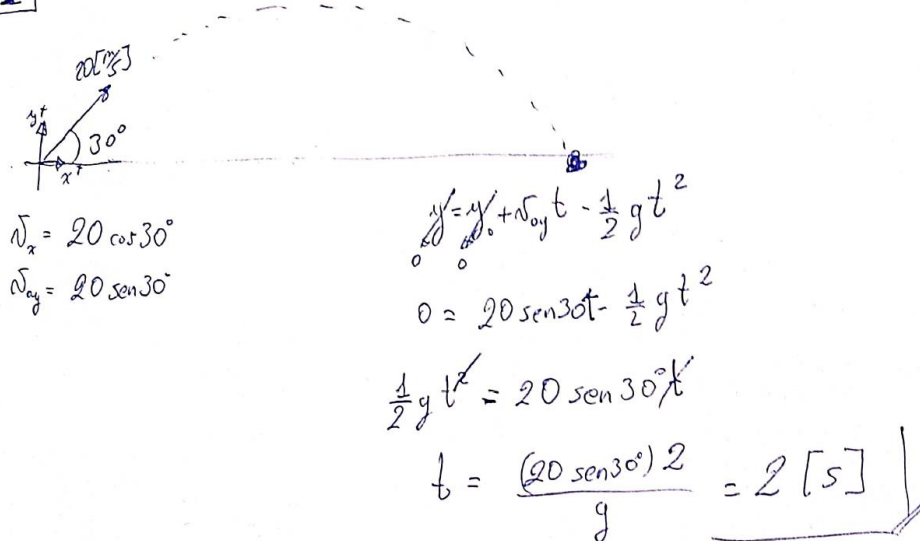 20[m/s]
y+
30°
x+
Vx = 20 cos30°
Voy = 20 sen30°
y = y₀ + Voy t - 1/2 g t²
0 0
0 = 20 sen30t - 1/2 g t²
1/2 g t² = 20 sen30° t
t = (20 sen30°) 2 / g = 2 [s]